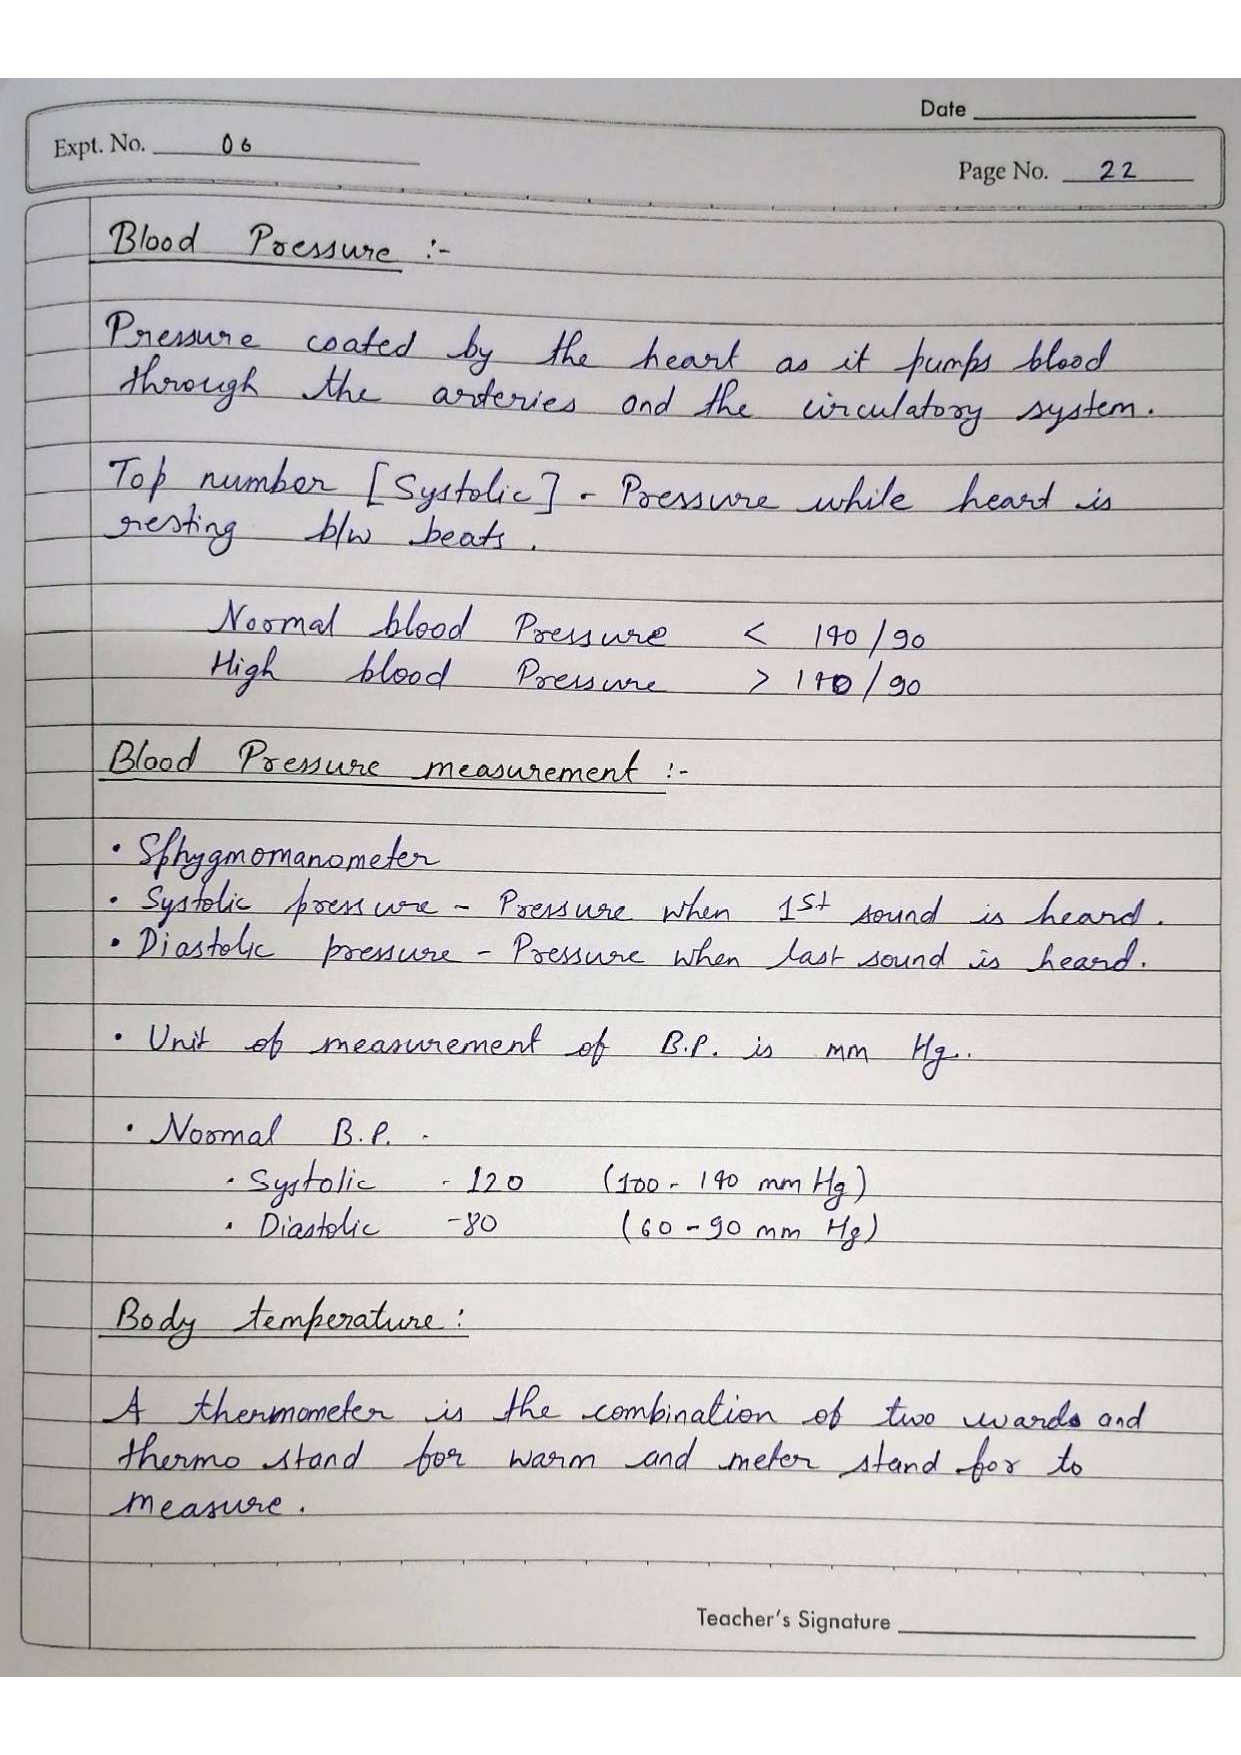 Date
Expt. No. 06
Page No. 22
Blood Pressure :-
Pressure coated by the heart as it pumps blood
through the arteries and the circulatory system.
Top number [Systolic] - Pressure while heart is
resting b/w beats.
Normal blood Pressure < 140/90
High blood Pressure > 140/90
Blood Pressure measurement :-
• Sphygmomanometer
• Systolic pressure - Pressure when 1st sound is heard.
• Diastolic pressure - Pressure when last sound is heard.
• Unit of measurement of B.P. is mm Hg..
• Normal B.P. -
• Systolic - 120 (100 - 140 mm Hg)
• Diastolic - 80 (60 - 90 mm Hg)
Body temperature :
A thermometer is the combination of two wards and
thermo stand for warm and meter stand for to
measure.
Teacher's Signature